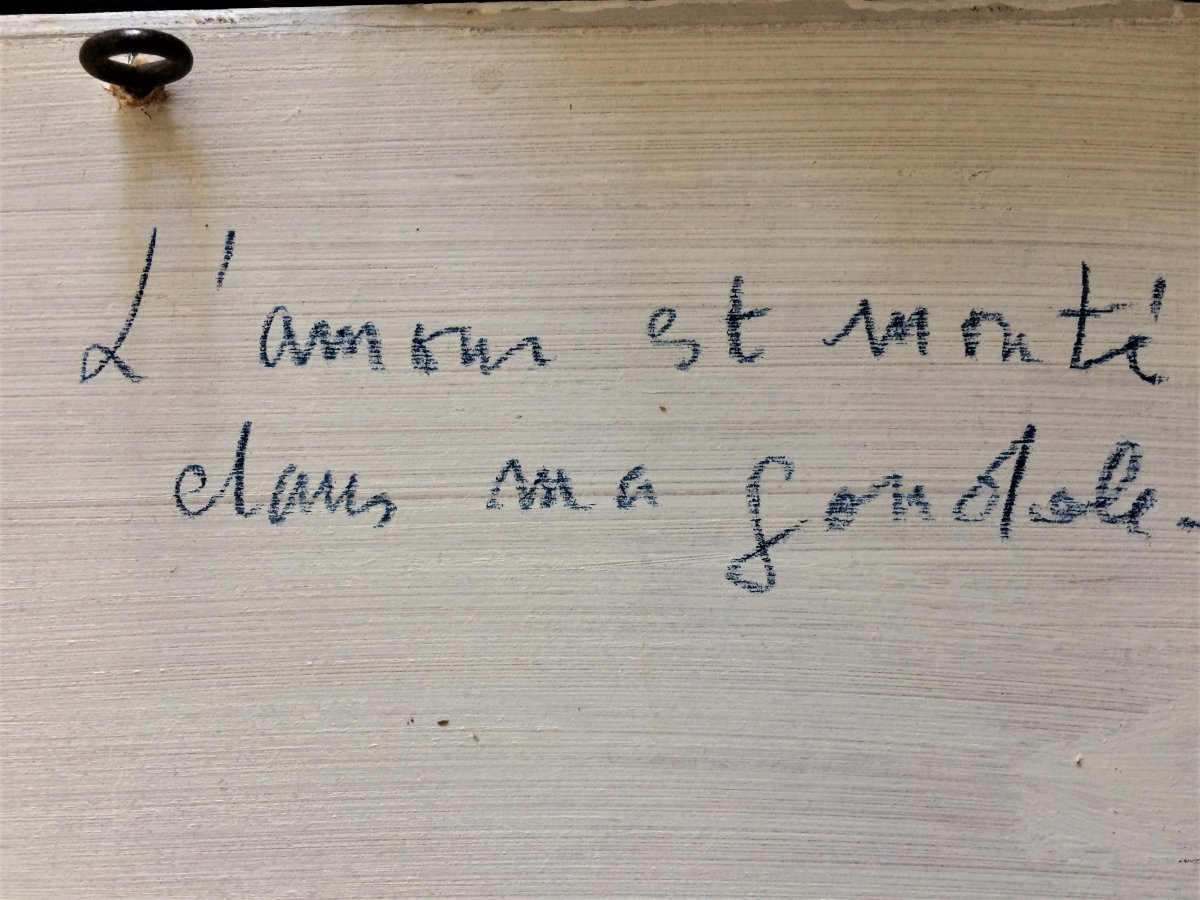 L'amour est monté
dans ma gondole.